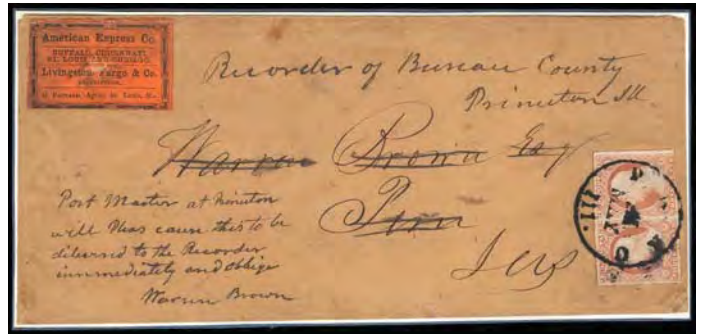 American Express Co.
BUFFALO, CINCINNATI,
ST. LOUIS AND CHICAGO.
Livingston, Fargo & Co.
St. Louis,
Recorder of Bureau County
Princeton Ill
Warren Brown Esq
Post Master at Princeton
will Pleas cause this to be
delivered to the Recorder
immediately and oblige
Warren Brown
Ills
MAY
ILL.